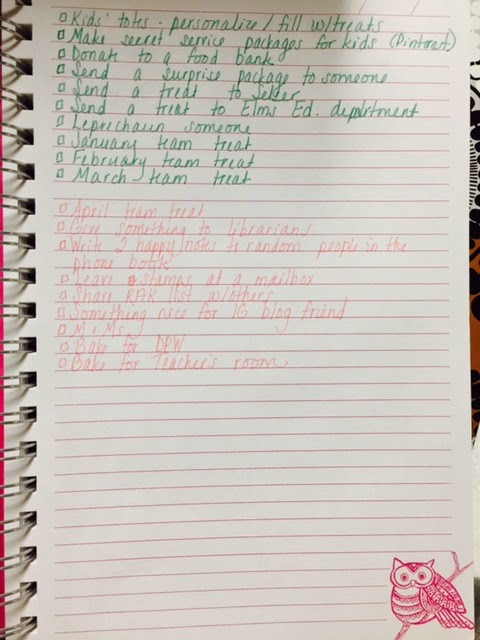 □ Kids' totes - personalize / fill w/treats
□ Make secret service packages for kids (Pinterest)
□ Donate to a food bank
□ Send a surprise package to someone
□ Send a treat to Selser
□ Send a treat to Elms Ed. department
□ Leprechaun someone
□ January team treat
□ February team treat
□ March team treat
□ April team treat
□ Give something to librarians
□ Write 2 happy notes to random people in the
phone book
□ Leave stamps at a mailbox
□ Share RAK list w/others
□ Something nice for IG blog friend
□ M+Ms
□ Bake for DPW
□ Bake for Teacher's room